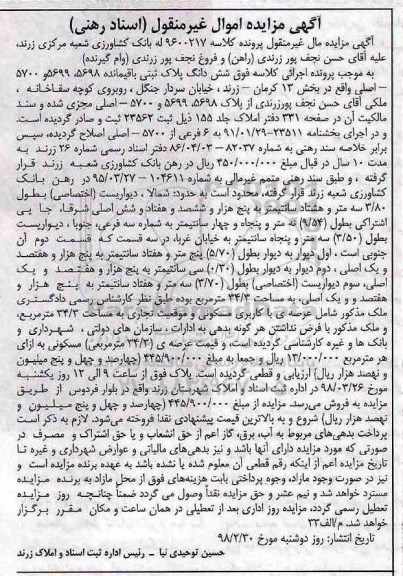 آگهی مزایده اموال غیرمنقول (اسناد رهنی)
آگهی مزایده مال غیرمنقول پرونده کلاسه ۹۶۰۰۲۱۷ له بانک کشاورزی شعبه مرکزی زرند،
علیه آقای حسن نجف پور زرندی (راهن) و فروغ نجف پور زرندی (وام گیرنده)
به موجب پرونده اجرائی کلاسه فوق شش دانگ پلاک ثبتی باقیمانده ۵۶۹۸، ۵۶۹۹و ۵۷۰۰
– اصلی واقع در بخش ۱۳ کرمان – زرند ، خیابان سردار جنگل ، روبروی کوچه سقاخانه ،
ملکی آقای حسن نجف پورزرندی از پلاک ۵۶۹۸، ۵۶۹۹ و ۵۷۰۰ – اصلی مجزی شده و سند
مالکیت آن در صفحه ۳۳۱ دفتر املاک جلد ۱۵۵ ذیل ثبت ۲۳۵۶۲ ثبت و صادر گردیده است.
و در اجرای بخشنامه ۲۳۵۱۱–۹۱/۰۱/۲۹ به ۶ فرعی از ۵۷۰۰ – اصلی اصلاح گردیده، سپس
برابر خلاصه سند رهنی به شماره ۸۲۰۳۷ – ۸۶/۰۴/۰۳ دفتر اسناد رسمی شماره ۲۶ زرند به
مدت ۱۰ سال در قبال مبلغ ۴۵۰/۰۰۰/۰۰۰ ریال در رهن بانک کشاورزی شعبه زرند قرار
گرفته ، و طبق سند رهنی متمم غیرمالی به شماره ۱۰۴۶۱۱ – ۹۵/۰۳/۲۷ در رهن بانک
کشاورزی شعبه زرند قرار گرفته، محدود است به حدود: شمالا ، دیواریست (اختصاصی) بطول
۳/۸۰ سه متر و هشتاد سانتیمتر به پنج هزار و ششصد و هفتاد و شش اصلی شرقا، جا پی
اشتراکی بطول (۹/۵۴) نه متر و پنجاه و چهار سانتیمتر به شماره سه فرعی، جنوبا ، دیواریست
بطول (۳/۵۰) سه متر و پنجاه سانتیمتر به خیابان غربا، در سه قسمت که قسمت دوم آن
جنوبی است ، اول دیوار به دیوار بطول (۵/۷۰) پنج متر و هفتاد سانتیمتر به پنج هزار و هفتصد
و یک اصلی ، دوم دیوار به دیوار بطول (۰/۳۰) سی سانتیمتر به پنج هزار و هفتصد و یک
اصلی، سوم دیواریست (اختصاصی) بطول (۳/۷۰) سه متر و هفتاد سانتیمتر به پنج هزار و
هفتصد و یک اصلی، به مساحت ۳۴/۳ مترمربع بوده طبق نظر کارشناس رسمی دادگستری
ملک مذکور شامل عرصه ی با کاربری مسکونی و موقعیت تجاری به مساحت ۳۴/۳ مترمربع،
ملک مذکور با فرض نداشتن هر گونه بدهی به ادارات، سازمان های دولتی ، شهرداری و
بانک ها و غیره کارشناسی گردیده است، و قیمت عرصه ی (۳۴/۳ مترمربعی) مسکونی به ازای
هر مترمربع ۱۳/۰۰۰/۰۰۰ ریال و جمعا به مبلغ ۴۴۵/۹۰۰/۰۰۰ (چهارصد و چهل و پنج میلیون
و نهصد هزار ریال) ارزیابی و قطعی گردیده است. پلاک فوق از ساعت ۹ الی ۱۲ روز یکشنبه
مورخ ۹۸/۰۳/۲۶ در اداره ثبت اسناد و املاک شهرستان زرند واقع در بلوار فردوس از طریق
مزایده به فروش می‌رسد. مزایده از مبلغ ۴۴۵/۹۰۰/۰۰۰ (چهارصد و چهل و پنج میلیون و
نهصد هزار ریال) شروع و به بالاترین قیمت پیشنهادی نقدا فروخته می‌شود. لازم به ذکر است
پرداخت بدهی‌های مربوط به آب، برق، گاز اعم از حق انشعاب و یا حق اشتراک و مصرف در
صورتی که مورد مزایده دارای آنها باشد و نیز بدهی‌های مالیاتی و عوارض شهرداری و غیره تا
تاریخ مزایده اعم از اینکه رقم قطعی آن معلوم شده یا نشده باشد به عهده برنده مزایده است و
نیز در صورت وجود مازاد، وجوه پرداختی بابت هزینه‌های فوق از محل مازاد به برنده مزایده
مسترد خواهد شد و نیم عشر و حق مزایده نقداً وصول می گردد ضمناً چنانچه روز مزایده
تعطیل رسمی گردد، مزایده روز اداری بعد از تعطیلی در همان ساعت و مکان مقرر برگزار
خواهد شد. م/الف۳۳
تاریخ انتشار: روز دوشنبه مورخ ۹۸/۲/۳۰
حسین توحیدی نیا – رئیس اداره ثبت اسناد و املاک زرند